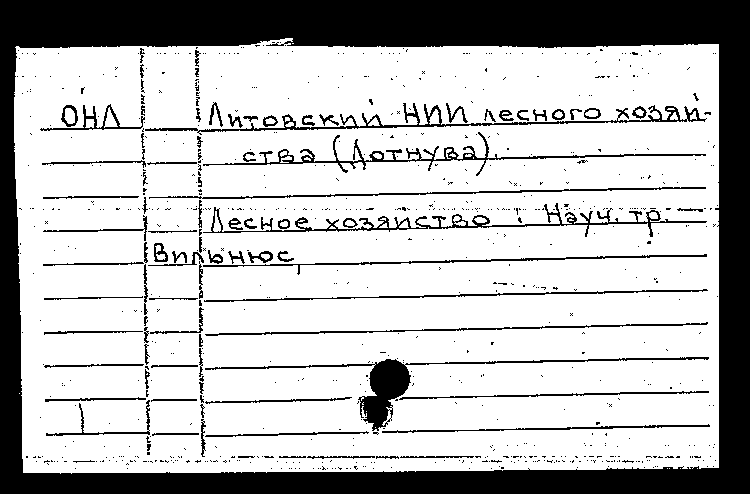 ОНЛ Литовский НИИ лесного хозяй-
ства (Дотнува).
Лесное хозяйство : Науч. тр. —
Вильнюс,